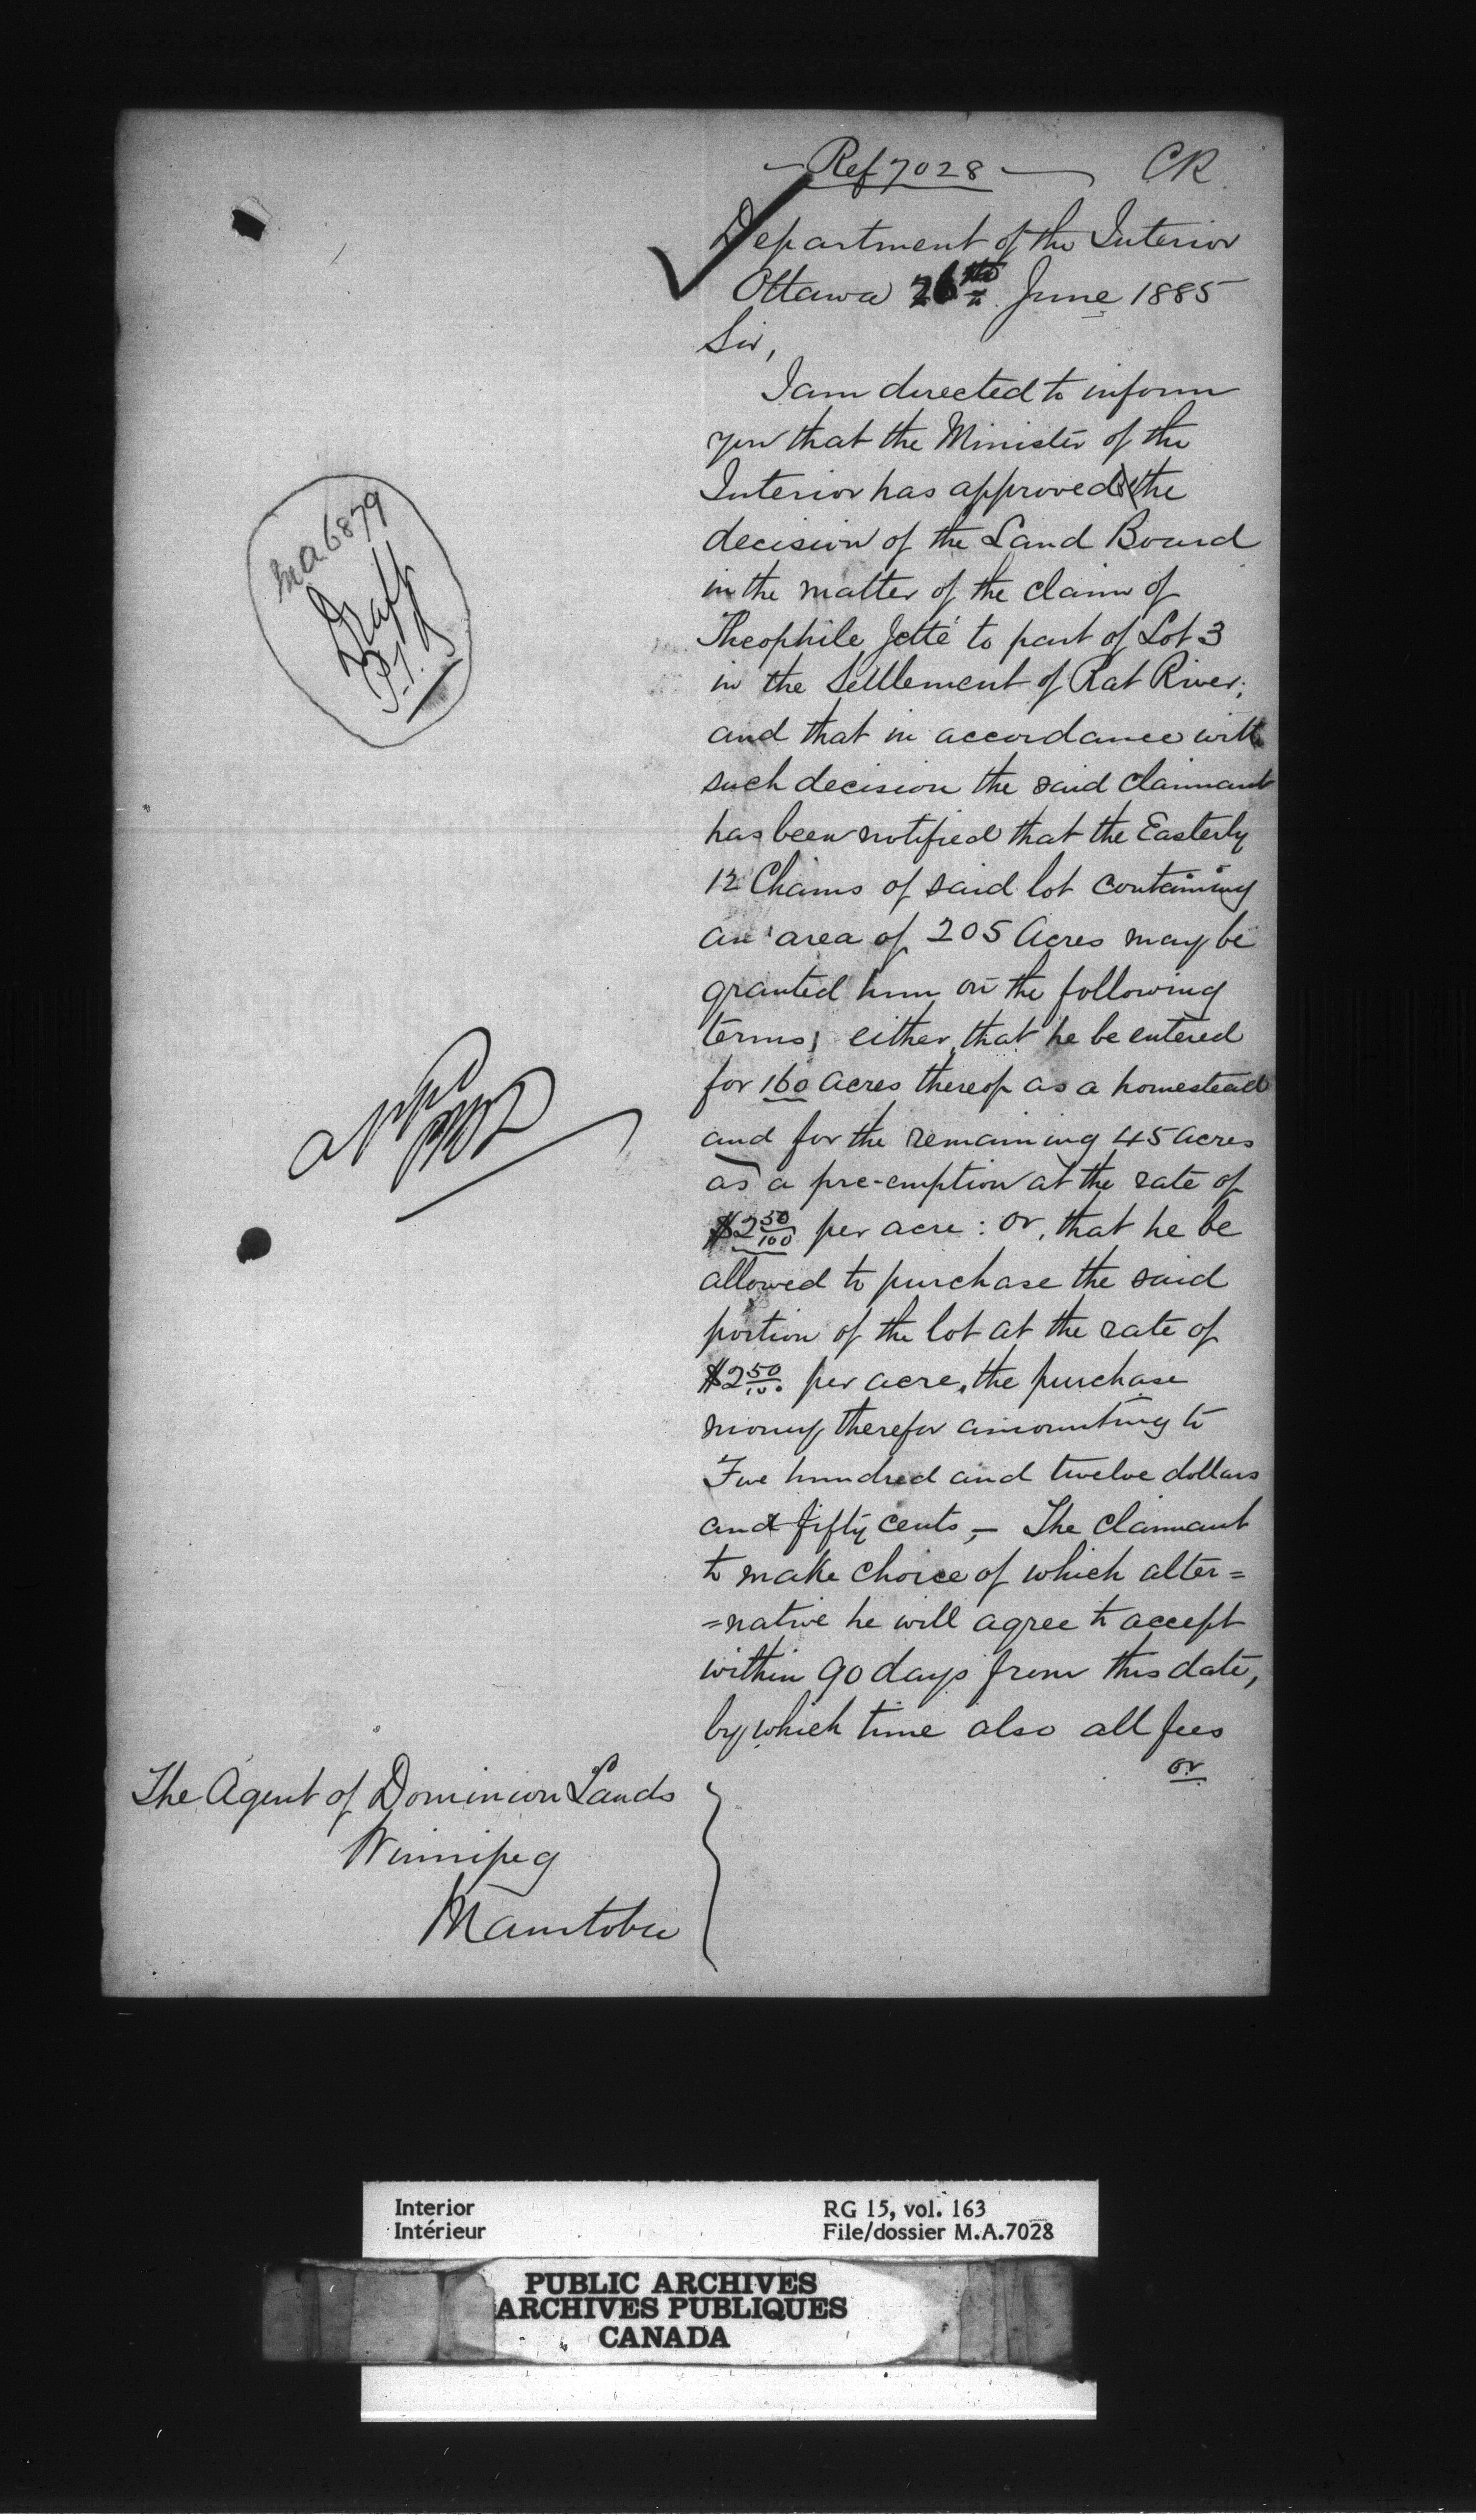 Ref 7028 CR
Department of the Interior
Ottawa 26th June 1885
Sir,
I am directed to inform
you that the Minister of the
Interior has approved the
decision of the Land Board
in the matter of the claim of
Theophile Jetté to part of Lot 3
in the Settlement of Rat River;
and that in accordance with
such decision the said Claimant
has been notified that the Easterly
12 Chains of said lot containing
an area of 205 Acres may be
granted him on the following
terms; either, that he be entered
for 160 acres thereof as a homestead
and for the remaining 45 acres
as a pre-emption at the rate of
$2 50/100 per acre: or, that he be
allowed to purchase the said
portion of the lot at the rate of
$2 50/100 per acre, the purchase
money therefor amounting to
Five hundred and twelve dollars
and fifty cents, – The Claimant
to make choice of which alter=
=native he will agree to accept
within 90 days from this date,
by which time also all fees
or
M.A. 6879
Draft
The Agent of Dominion Lands
Winnipeg
Manitoba
Interior
Intérieur
RG 15, vol. 163
File/dossier M.A.7028
PUBLIC ARCHIVES
ARCHIVES PUBLIQUES
CANADA